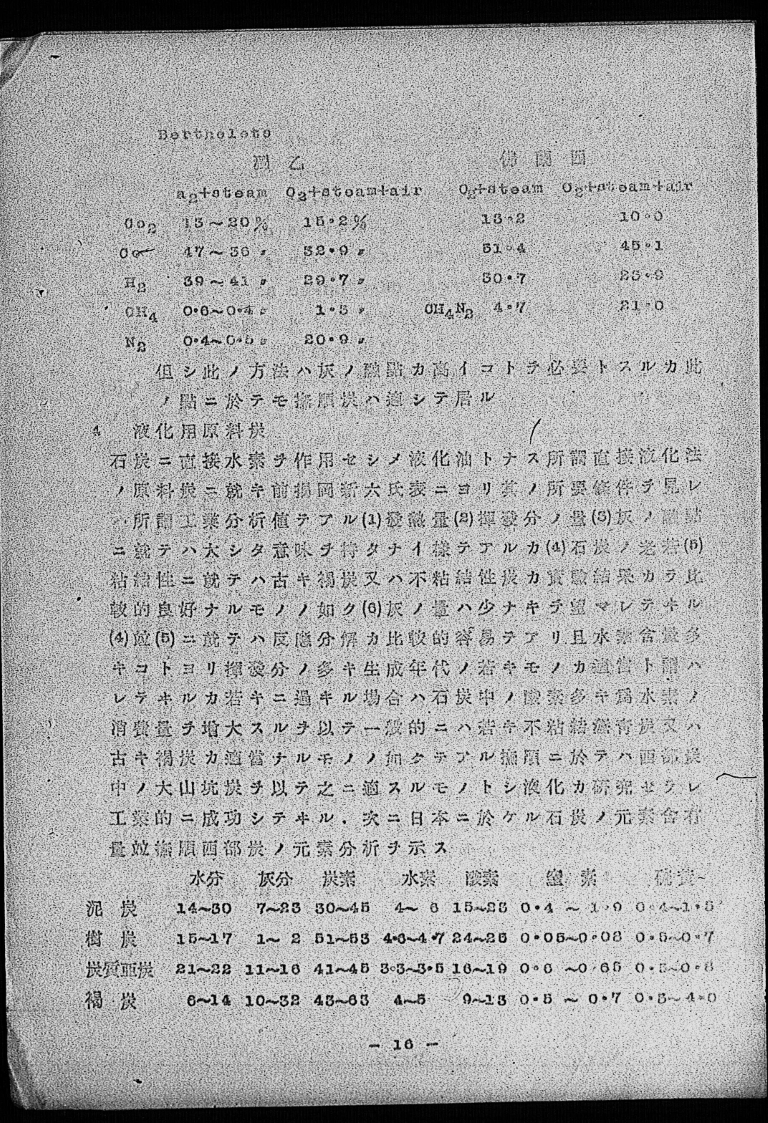 Bertholots
獨乙 佛蘭西
a2+steam O2+steam+air O2+steam O2+steam+air
Co2 13～20% 15.2% 13.2 10.0
Co 47～36〃 32.9〃 51.4 45.1
H2 39～41〃 29.7〃 30.7 23.9
CH4 0.6～0.4〃 1.3〃 CH4N2 4.7 21.0
N2 0.4～0.5〃 20.9〃
但シ此ノ方法ハ灰ノ融點カ高イコトヲ必要トスルカ此
ノ點ニ於テモ撫順炭ハ適シテ居ル
4 液化用原料炭
石炭ニ直接水素ヲ作用セシメ液化油トナス所謂直接液化法
ノ原料炭ニ就キ前揭岡新六氏表ニヨリ其ノ所要條件ヲ見レ
ハ所謂工業分析値テアル(1)發熱量(2)揮發分ノ量(3)灰ノ融點
ニ就テハ大シタ意味ヲ持タナイ樣テアルカ(4)石炭ノ老若(5)
粘結性ニ就テハ古キ褐炭又ハ不粘結性炭カ實驗結果カラ比
較的良好ナルモノノ如ク(6)灰ノ量ハ少ナキヲ望マレテヰル
(4)竝(5)ニ就テハ反應分解カ比較的容易テアリ且水素含量多
キコトヨリ揮發分ノ多キ生成年代ノ若キモノカ適當ト謂ハ
レテヰルカ若キニ過キル場合ハ石炭中ノ酸素多キ爲水素ノ
消費量ヲ增大スルヲ以テ一般的ニハ若キ不粘結瀝靑炭又ハ
古キ褐炭カ適當ナルモノノ如クテアル撫順ニ於テハ西部炭
中ノ大山坑炭ヲ以テ之ニ適スルモノトシ液化カ硏究セラレ
工業的ニ成功シテヰル．次ニ日本ニ於ケル石炭ノ元素含有
量竝撫順西部炭ノ元素分析ヲ示ス
水分 灰分 炭素 水素 酸素 窒素 硫黃
泥炭 14～30 7～23 30～45 4～6 15～25 0.4～1.9 0.4～1.5
樹炭 15～17 1～2 51～53 4.6～4.7 24～26 0.05～0.08 0.5～0.7
炭質亞炭 21～22 11～16 41～45 3.3～3.5 16～19 0.6～0.65 0.5～0.8
褐炭 6～14 10～32 43～63 4～5 9～13 0.5～0.7 0.5～4.0
- 16 -